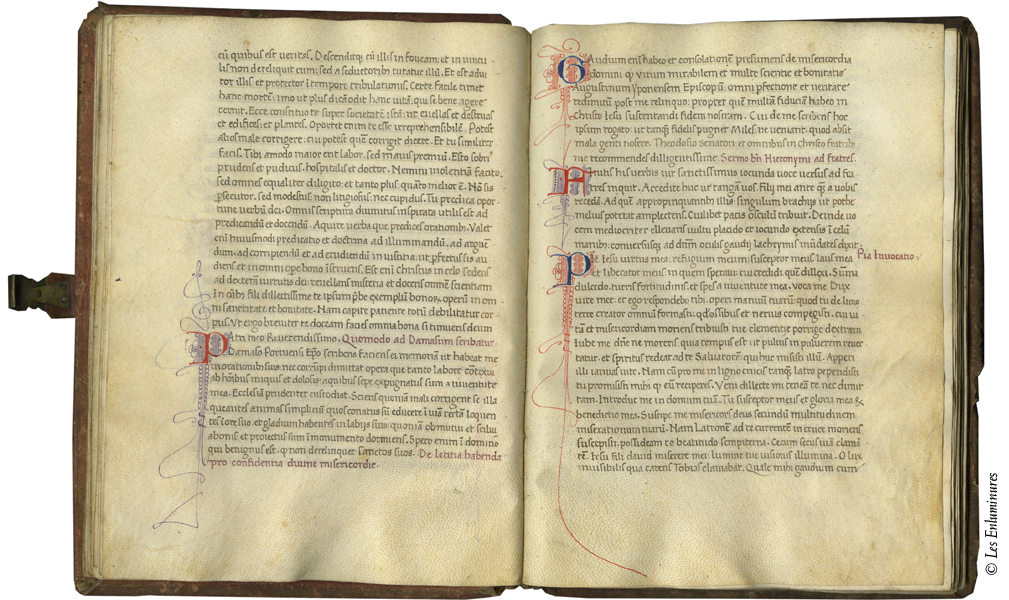 cū quibus est veritas. Descenditq; cū illis in foueam: et in vincu
lis non dereliquit eum: sed a seductorib; tutatur illū. Et est adiu
tor illis: et protector ī tempore tribulationis. Certe facile timet
hanc mortē: imo ut plus dicā odit hanc uitā: qui se bene agere
cernit. Ecce constituo te super societatē istā: ut euellas et destruas
et edifices et plantes. Oportet enim te esse irreprehensibilē. Potest
alios male corrigere: cui potest quis corrigit dicere. Et tu similiter
facis. Tibi amodo maior erit labor, sed maius premiū. Esto sobri'
prudens et pudicus, hospitalis et doctor. Nemini violentiā facito.
sed omnes equaliter diligito: et tanto plus quāto melior ē. Nō sis
persecutor, sed modestus non litigiosus: nec cupidus. Tu predica opor
tune verbū dei. Omnis scriptura diuinitus inspirata utilis est ad
predicandū et docendū. Acquire verba que predices orationib;. Valet
enī huiusmodi predicatio et doctrina ad illuminandū, ad arguē
dum, ad corripiendū et ad erudiendū in iusticia: ut perfectus sis au
diens et in omni ope bono īstructus. Est enī Christus in celo sedens
ad dexterā virtutis dei: reuelans misteria et docens omnē scientiam
In oīb; fili dilectissime te ipsum prebe exemplū bonor, operū in om
ni sanctitate et bonitate. Nam capite patiente totū debilitatur cor
pus. Ut ergo breuiter te doceam facies omnia bona si timueris deum
PAtri meo Reuerendissimo. Quomodo ad Damasum scribatur
Damaso Portuensi Epō scribens facienscq; memoriā ut habeat me
in orationibus suis: nec corrūpi dimittat opera que tanto labore cōtexui
ab hoībus iniquis et dolosis: a quibus sepe expugnatus sum a iuuentute
mea. Ecclesiā prudenter custodiat. Sciens quoniā mali corrigent se illa
queantes animas simpliciū quos conatus sū educere ī viā rectā loquen
tes iore suo, et gladium habentes in labijs suis: quoniā obmutui et silui
abonis et proiectus sum ī monumento dormiens. Spero enim ī domino
qui benignus est, qr non derelinquet sanctos suos. De letitia habenda
pro confidentia diuine misericordie.
GAudium enī habeo et consolationē presumens de misericordia
domini qr virum mirabilem et multe scientie et bonitatis
Augustinum Yponensem Episcopū: omni perfectione et ueritate
redimitū post me relinquo: propter quē multā fiduciam habeo in
Christo Iesu sustentandi fidem nostram. Cui de me scribens hoc
ipsum rogato: ut tanq; fidelis pugnet Miles: ne ueniant, quod absit
mala genti nostre. Theodosio Senatori et omnibus in Christo fratrib;
me recommendes diligentissime. Sermo bti Hieronymi ad fratres.
FInitis his verbis uir sanctissimus iocunda uoce versus ad fra
tres inquit. Accedite huc ut tangā uos filij mei ante q a uobis
recedā. Ad quē appropinquantim illis singulum brachijs ut potis
melius poterat amplectens. Cuilibet pacis osculū tribuit. Deinde uo
cem mediocriter eleuans vultu placido et iocundo extensis ī celū
manib; conuersisq; ad dnīm oculis gaudij lachrymis inūdatis dixit
PIe Iesu virtus mea: refugium meum: susceptor meus: laus mea Pia Inuocatio
et liberator meus in quem speraui: cui credidi quē dilexi. Sūma
dulcedo, turris fortitudinis, et spes a iuuentute mea. Voca me Dux
vite mee: et ego respondebo tibi, operi manuū tuarū: quod tu de limo
terre creator omniū formasti: qd ossibus et neruis compegisti, cui ui
tā et misericordiam moriens tribuisti tue clementie porrige dextram
Iube me dnē: ne moreris qua tempus est: ut puluis in puluerem reuer
tatur, et spiritus redeat ad te Saluatorē: qui huc misisti illū. Aperi
illi ianuas uite. Nam cū pro me in ligno crucis tanq; latro pependisti
tu promisisti mihi qr eū reciperes. Veni dilecte mi teneā te: nec dimit
tam. Introduc me in domum tuā. Tu susceptor meus et gloria mea &
benedictio mea. Suscipe me misericors deus secundū multitudinem
miserationum tuarū. Nam Latronē ad te currentē in cruce moriens
suscepisti, possideam te beatitudo sempiterna. Cecum secus uiā clamā
tē. Iesu fili dauid miserere mei: lumine tue uisionis illumina. O lux
inuisibilis qua carens Tobias clamabat. Quale mihi gaudium cum
© Les Enluminures